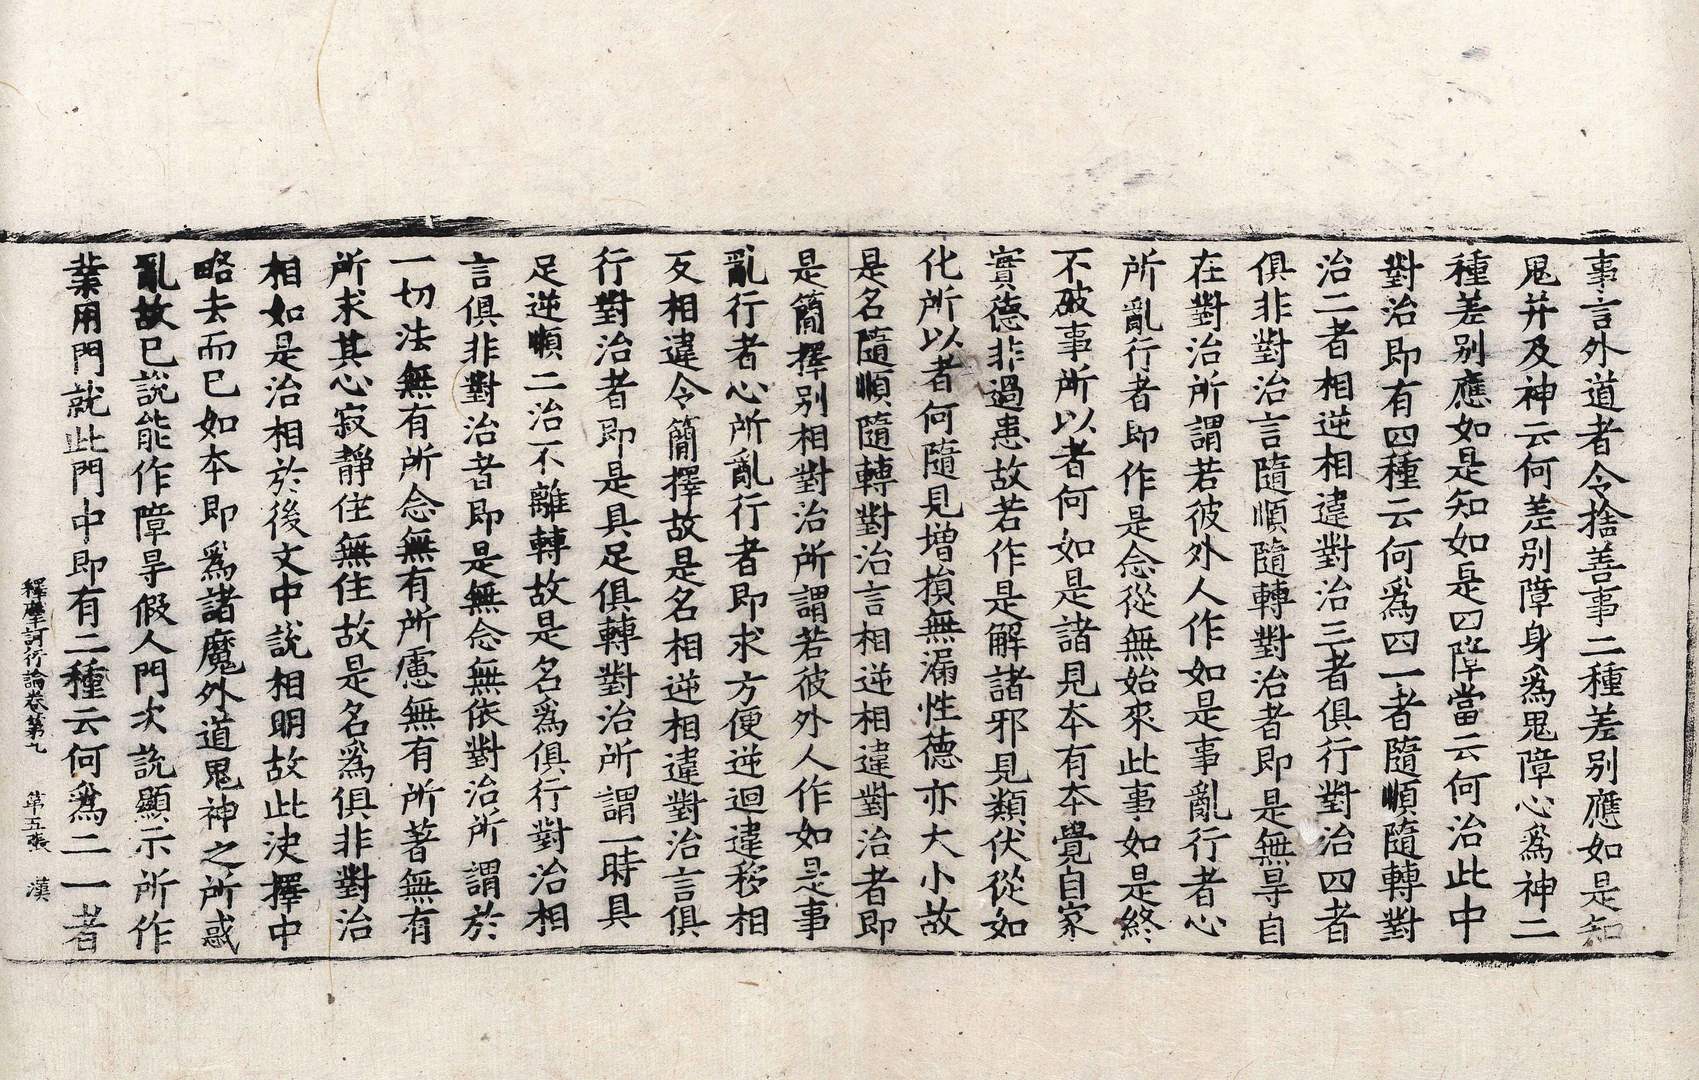 事言外道者令捨善事二種差別應如是知
鬼并及神云何差別障身爲鬼障心爲神二
種差別應如是知如是四障當云何治此中
對治即有四種云何爲四一者隨順隨轉對
治二者相逆相違對治三者俱行對治四者
俱非對治言隨順隨轉對治者即是無㝵自
在對治所謂若彼外人作如是事亂行者心
所亂行者即作是念從無始來此事如是終
不破事所以者何如是諸見本有本覺自家
實德非過患故若作是解諸邪見類伏從如
化所以者何隨見增損無漏性德亦大小故
是名隨順隨轉對治言相逆相違對治者即
是簡擇別相對治所謂若彼外人作如是事
亂行者心所亂行者即求方便逆迴違移相
互相違令簡擇故是名相逆相違對治言俱
行對治者即是具足俱轉對治所謂一時具
足逆順二治不離轉故是名爲俱行對治相
言俱非對治者即是無念無依對治所謂於
一切法無有所念無有所慮無有所著無有
所求其心寂靜住無住故是名爲俱非對治
相如是治相於後文中説相明故此決擇中
略去而已如本即爲諸魔外道鬼神之所惑
亂故已說能作障㝵假人門次說顯示所作
業用門就此門中即有二種云何爲二一者
釋摩訶衍論卷第九　第五張　漢